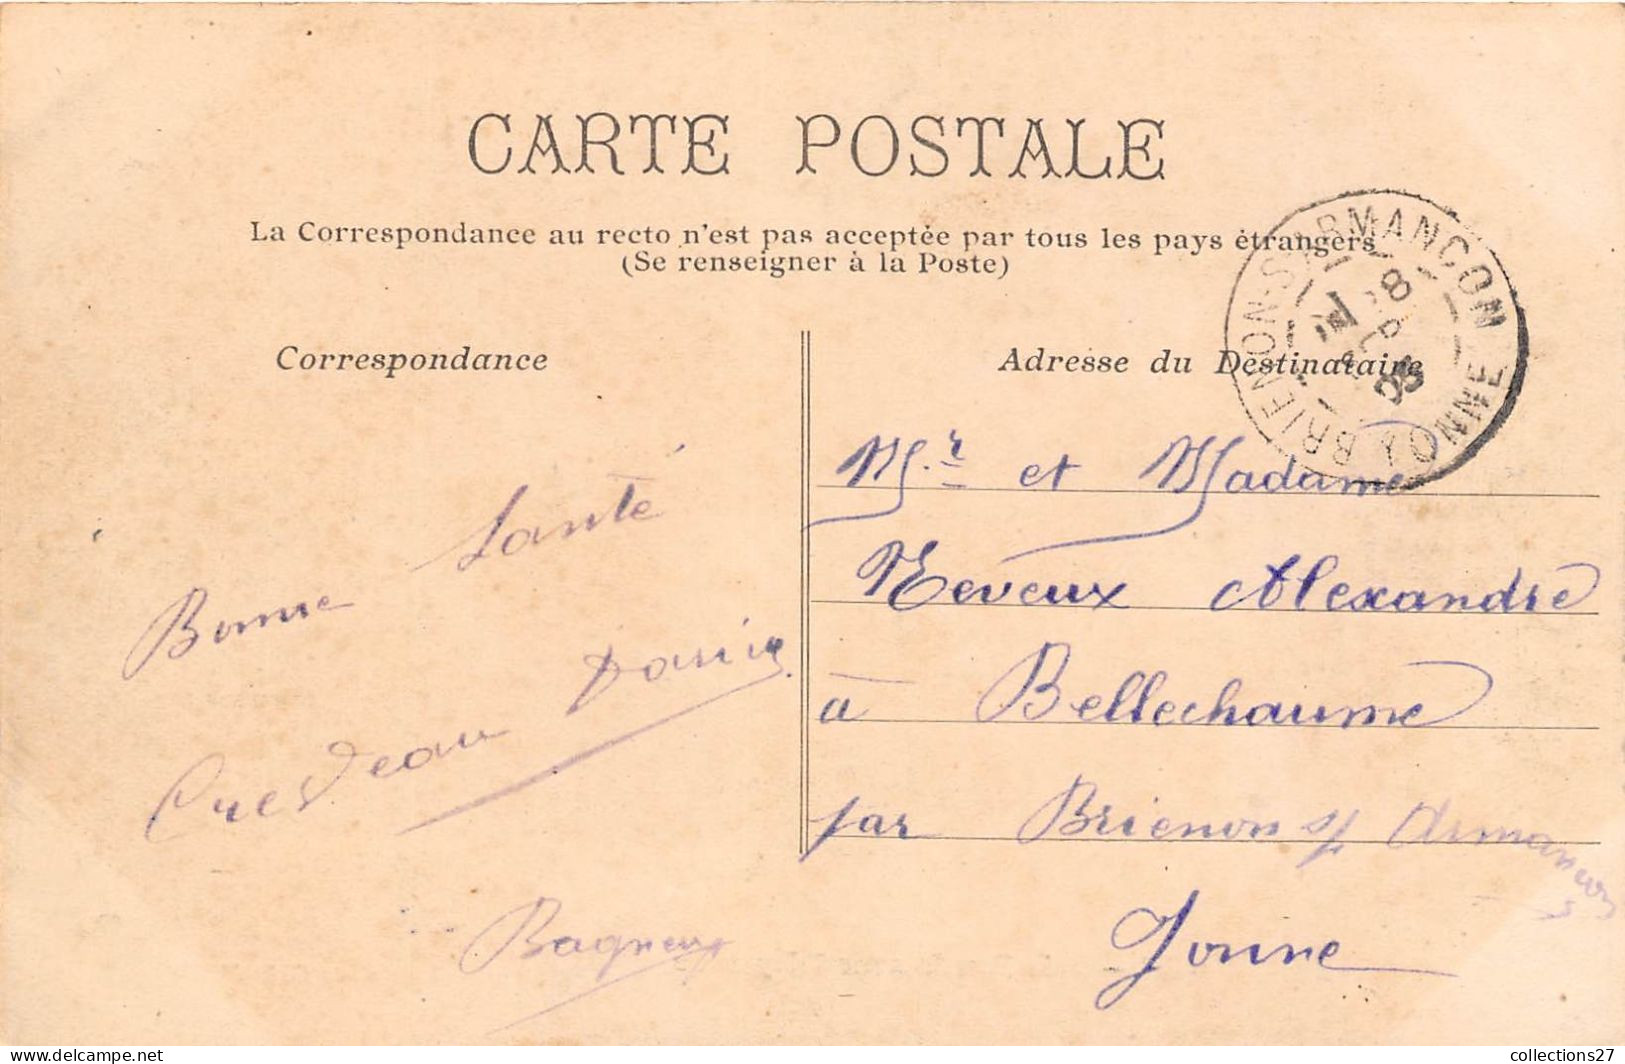 CARTE POSTALE
La Correspondance au recto n'est pas acceptée par tous les pays étrangers
(Se renseigner à la Poste)
Correspondance
Bonne Santé
Bagneux
Adresse du Destinataire
Mr et Madame
Neveux Alexandre
à Bellechaume
par Brienon s/ Armançon
Yonne
BRIENON-S-ARMANCON YONNE
8
05
collections27